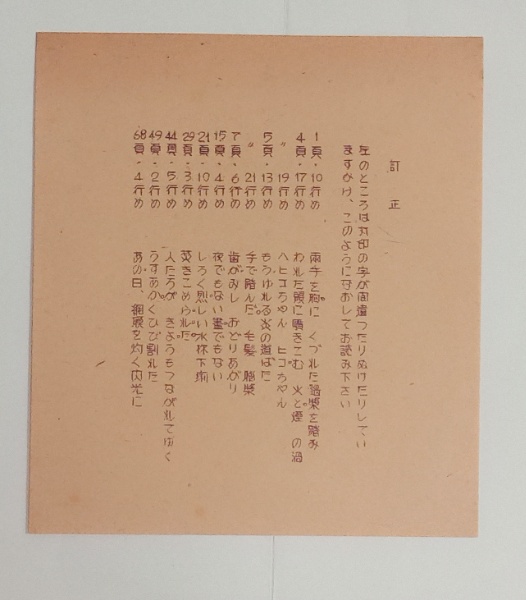 訂正
左のところは丸印の字が間違つたりぬけたりしてい
ますから、このようになおしてお読み下さい
1頁・10行め 両手を胸に くづれた脳漿を踏み
4頁・17行め われた頭に噴きこむ 火と煙 の渦
〃 19行め ヘヒコちやん ヒコちやん
5頁・13行め もうゆれる炎の道ばた
〃 21行め 手で踏んだ 毛髪、脳漿
7頁・6行め 歯がみし おどりあがり
15頁・4行め 夜でもない昼でもない
21頁・10行め しろく烈しい水林下術
29頁・3行め 焚きこめられた
44頁・5行め 人たちが きようもつながれてゆく
49頁・2行め うすあかくひび割れた
68頁・4行め あの日、網膜を灼く閃光に